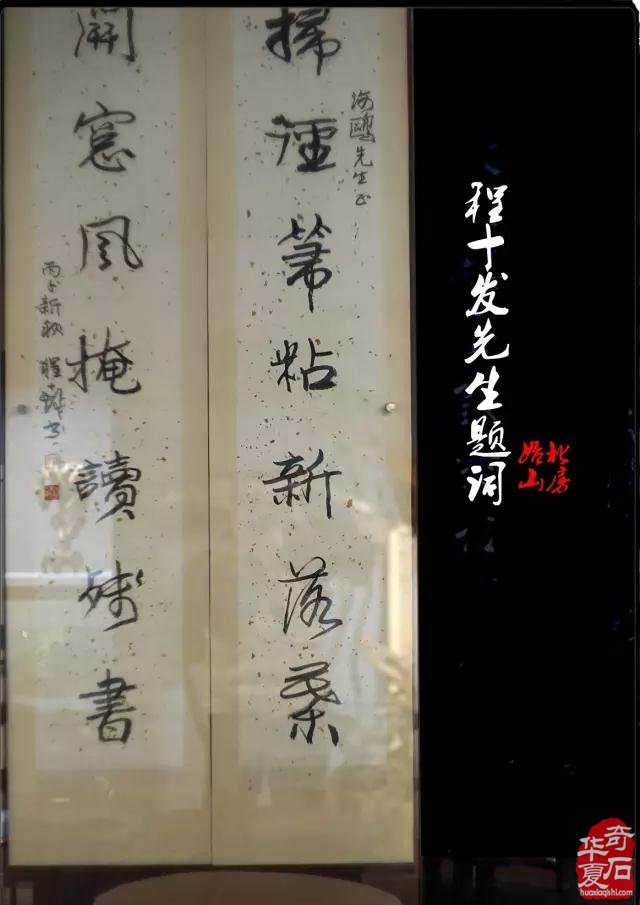 海鷗先生正
掃徑箒粘新落葉
開窓風掩讀殘書
丙子新秋 程十髮書
程十发先生题词
华夏奇石
huaxiaqishi.com